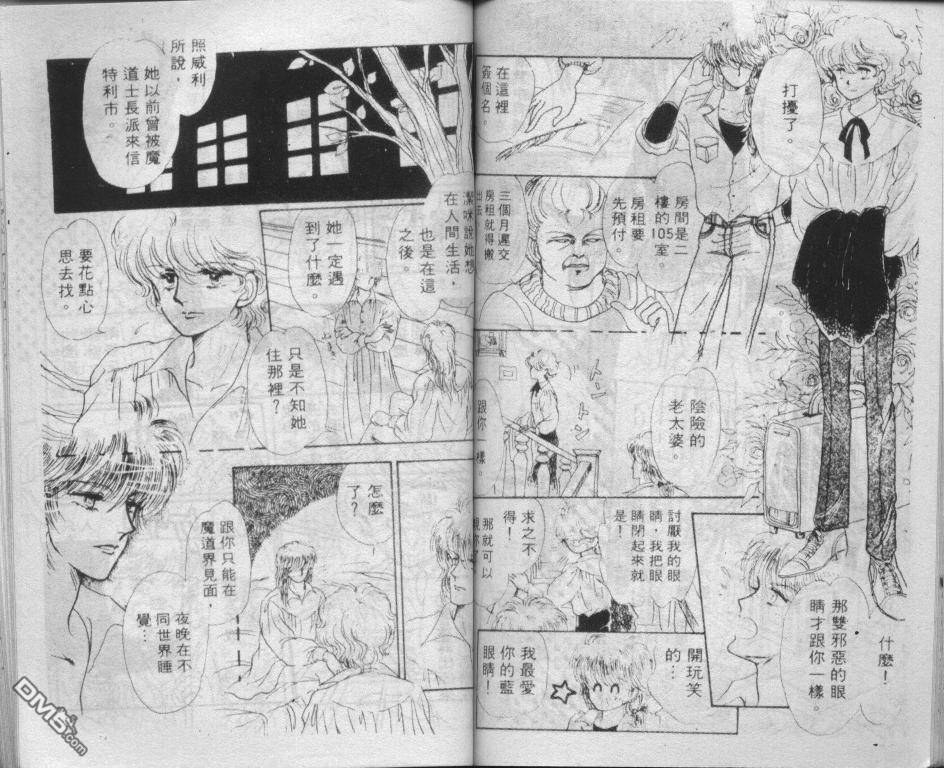 打擾了。
在這裡
簽個名。
房間是二
樓的105室。
房租要
先預付。
三個月遲交
房租就得搬
出去
陰險的
老太婆。
トントン
跟你一樣。
什麼!
那雙邪惡的眼
睛才跟你一樣。
討厭我的眼
睛,我把眼
睛閉起來就
是!
求之不
得!
那就可以
開玩笑
的…
我最愛
你的藍
眼睛!
照威利
所說,
她以前曾被魔
道士長派來信
特利市。
潔咪說她想
在人間生活,
也是在這
之後。
她一定遇
到了什麼。
要花點心
思去找。
只是不知她
住那裡?
怎麼
了?
跟你只能在
魔道界見面,
夜晚在不
同世界睡
覺…
DM5.com